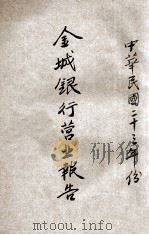 中華民國二十三年份
金城銀行營业報告
www.jydoc.com